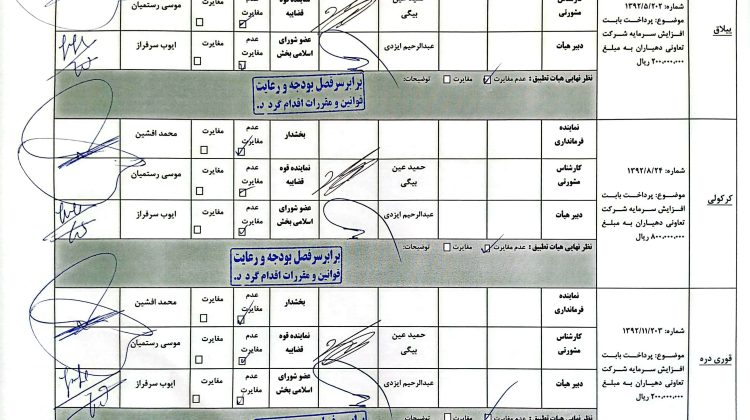 ییلاق
شماره: ۱۳۹۲/۵/۲۰۲
موضوع: پرداخت بابت
افزایش سرمایه شرکت
تعاونی دهیاران به مبلغ
۲۰۰,۰۰۰,۰۰۰ ریال
کارشناس
مشورتی
حمید عین
بیگی
نماینده قوه
قضاییه
عدم
مغایرت
مغایرت
موسی رستمیان
دبیر هیأت
عبدالرحیم ایزدی
عضو شورای
اسلامی بخش
عدم
مغایرت
مغایرت
ایوب سرفراز
نظر نهایی هیات تطبیق: عدم مغایرت مغایرت توضیحات:
برابر سرفصل بودجه و رعایت
قوانین و مقررات اقدام گردد.
کرکولی
شماره: ۱۳۹۲/۸/۲۴
موضوع: پرداخت بابت
افزایش سرمایه شرکت
تعاونی دهیاران به مبلغ
۸۰۰,۰۰۰,۰۰۰ ریال
نماینده
فرمانداری
بخشدار
عدم
مغایرت
مغایرت
محمد افشین
کارشناس
مشورتی
حمید عین
بیگی
نماینده قوه
قضاییه
عدم
مغایرت
مغایرت
موسی رستمیان
دبیر هیأت
عبدالرحیم ایزدی
عضو شورای
اسلامی بخش
عدم
مغایرت
مغایرت
ایوب سرفراز
نظر نهایی هیات تطبیق: عدم مغایرت مغایرت توضیحات:
برابر سرفصل بودجه و رعایت
قوانین و مقررات اقدام گردد.
قوری دره
شماره: ۱۳۹۲/۱۱/۲۰۳
موضوع: پرداخت بابت
افزایش سرمایه شرکت
تعاونی دهیاران به مبلغ
۲۰۰,۰۰۰,۰۰۰ ریال
نماینده
فرمانداری
بخشدار
عدم
مغایرت
مغایرت
محمد افشین
کارشناس
مشورتی
حمید عین
بیگی
نماینده قوه
قضاییه
عدم
مغایرت
مغایرت
موسی رستمیان
دبیر هیأت
عبدالرحیم ایزدی
عضو شورای
اسلامی بخش
عدم
مغایرت
مغایرت
ایوب سرفراز
نظر نهایی هیات تطبیق: عدم مغایرت مغایرت توضیحات: